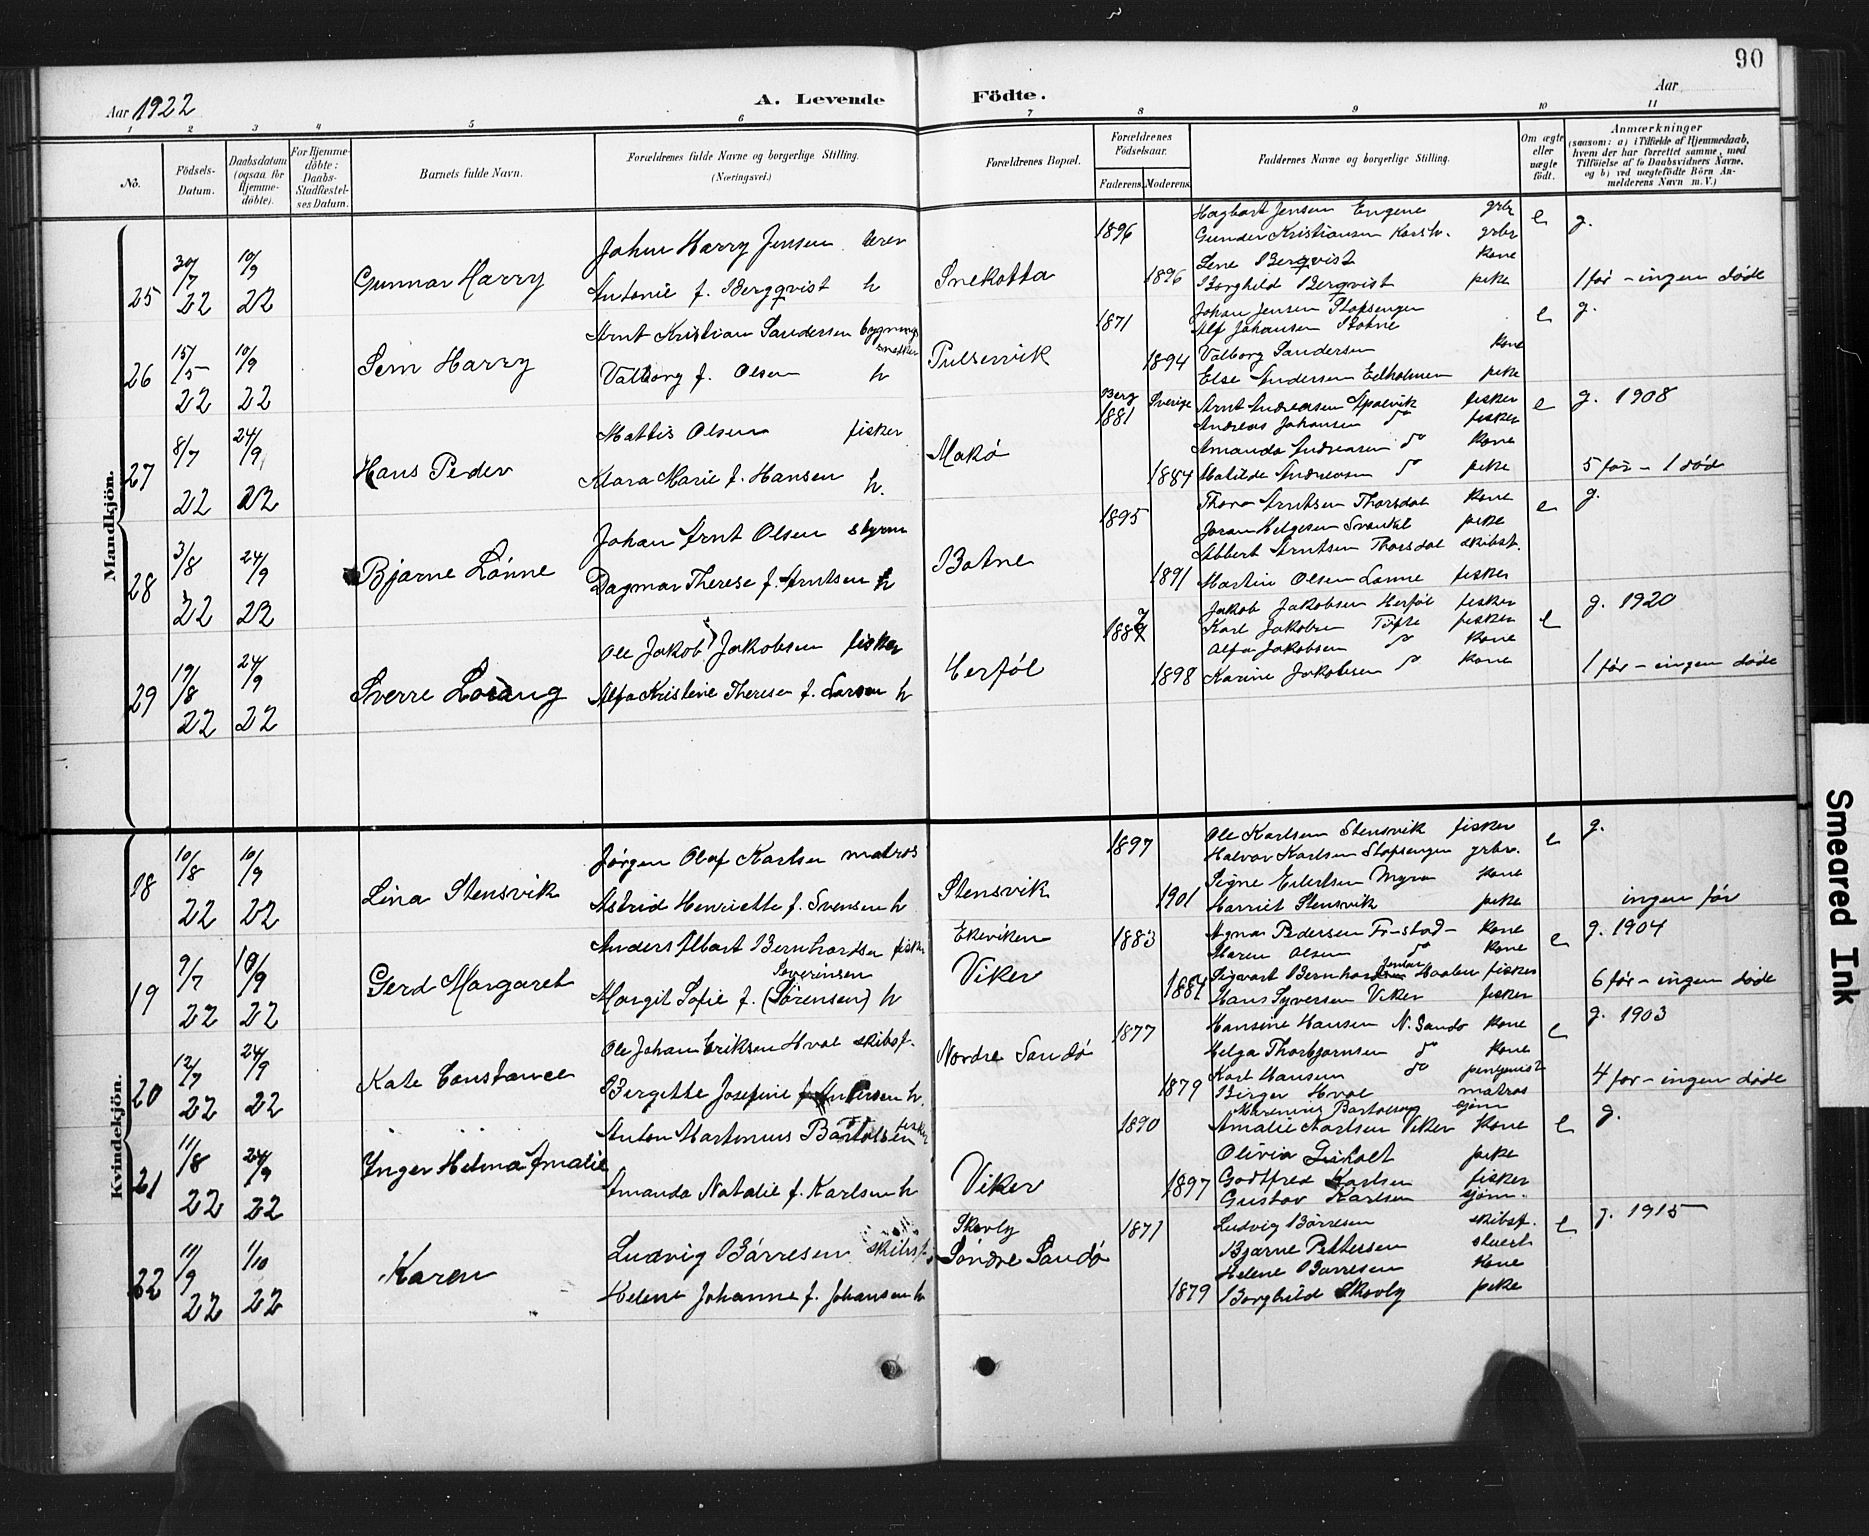 90
Aar 1922
A. Levende Födte.
Aar
1 2 3 4 5 6 7 8 9 10 11
No.
Födsels-Datum.
Daabsdatum (ogsaa for Hjemmedöbte).
For Hjemmedöbte: Daabs-Stadfæstelses Datum.
Barnets fulde Navn.
Forældrenes fulde Navne og borgerlige Stilling.
(Næringsvei.)
Forældrenes Bopæl.
Forældrenes Födselsaar.
Faderens. Moderens.
Faddernes Navne og borgerlige Stilling.
Om ægte eller uægte födt.
Anmærkninger
(saasom: a) i Tilfælde af Hjemmedaab,
hvem der har forrettet samme, med
Tilföielse af to Daabsvidners Navne,
og b) ved uægtefödte Börn An-
melderens Navn m. V.)
Mandkjön.
25 30/7 22 10/9 22 Gunnar Harry
Johan Harry Jensen
Antonie f. Bergqvist h
Snekotta
1896 1896
Hagbart Jensen Engene grbr
Gunder Kristiansen grbr
Lene Bergqvist kone
Borghild Bergqvist pike
e g.
1 før - ingen døde
26 15/5 22 10/9 22 Sem Harry
Arnt Kristian Sandersen bygnings
snekker
Valborg f. Olsen h
Pulservik
1871 1894
Johan Jensen Stopsengen
Alf Johansen Stokne
Valborg Sandersen kone
Else Andersen Edholmen pike
e g.
27 8/7 22 24/9 22 Hans Peder
Mattis Olsen fisker
Klara Marie f. Hansen h.
Makø
Berg 1881 Sverige 1884
Arnt Andreasen Apalvik fisker
Andreas Johansen do fisker
Amanda Andreasen do kone
Matilde Andreasen do pike
e g. 1908
5 før - 1 død
28 3/8 22 24/9 22 Bjarne Lønne
Johan Arnt Olsen styrm
Dagmar Therese f. Arntsen h
Botne
1895 1891
Thora Arntsen Thorsdal kone
Joran Helgesen pike
Albert Arntsen Thorsdal skibsf.
Martin Olsen Lønne fisker
e g.
29 19/8 22 24/9 22 Sverre Lorang
Ole Jakob Jakobsen fisker
Alfa Kristine Therese f. Larsen h
Herføl
1887 1898
Jakob Jakobsen Herføl fisker
Karl Jakobsen Tofte fisker
Alfa Jakobsen do kone
Karine Jakobsen do kone
e g. 1920
1 før - ingen døde
Kvindekjön.
18 10/8 22 10/9 22 Lina Stensvik
Jørgen Olaf Karlsen matros
Astrid Henriette f. Svensen h
Stensvik
1897 1901
Ole Karlsen Stensvik fisker
Halvor Karlsen Stopsengen grbr.
Signe Eilertsen Myra kone
Harriet Stensvik pike
e g.
ingen før
19 9/7 22 10/9 22 Gerd Margaret
Anders Albert Bernhardsen fisker
Severinsen
Margit Sofie f. (Sørensen) h
Ekeviken
Viker
1883 1884
Agnes Pedersen kone
Maren Olsen do kone
Sigvart Bernhardsen fisker
Hans Syversen Viker fisker
e g. 1904
6 før - ingen døde
20 12/7 22 24/9 22 Kate Constance
Ole Johan Eriksen Hval skibsf.
Bergitte Josefine f. Andersen h.
Nordre Sandø
1877 1879
Hansine Hansen N. Sandø kone
Helga Thorbjørnsen do kone
Karl Hansen do
Birger Hval matros
e g. 1903
4 før - ingen døde
21 11/8 22 24/9 22 Ynger Helma Amalie
Anton Martinius Bartolsen fisker
Amanda Natalie f. Karlsen h
Viker
1890 1897
Bartolsen sjøm
Amalie Karlsen Viker kone
Olivia pike
Godtfred Karlsen fisker
Gustav Karlsen sjøm.
e g.
22 11/9 22 1/10 22 Karen
Ludvig Børresen skibsf.
Helene Johanne f. Johansen h
Skovly
Søndre Sandø
1871 1879
Ludvig Børresen skibsf.
Bjarne Pettersen stuert
Helene Børresen kone
Borghild Skovly pike
e g. 1915
Smeared Ink